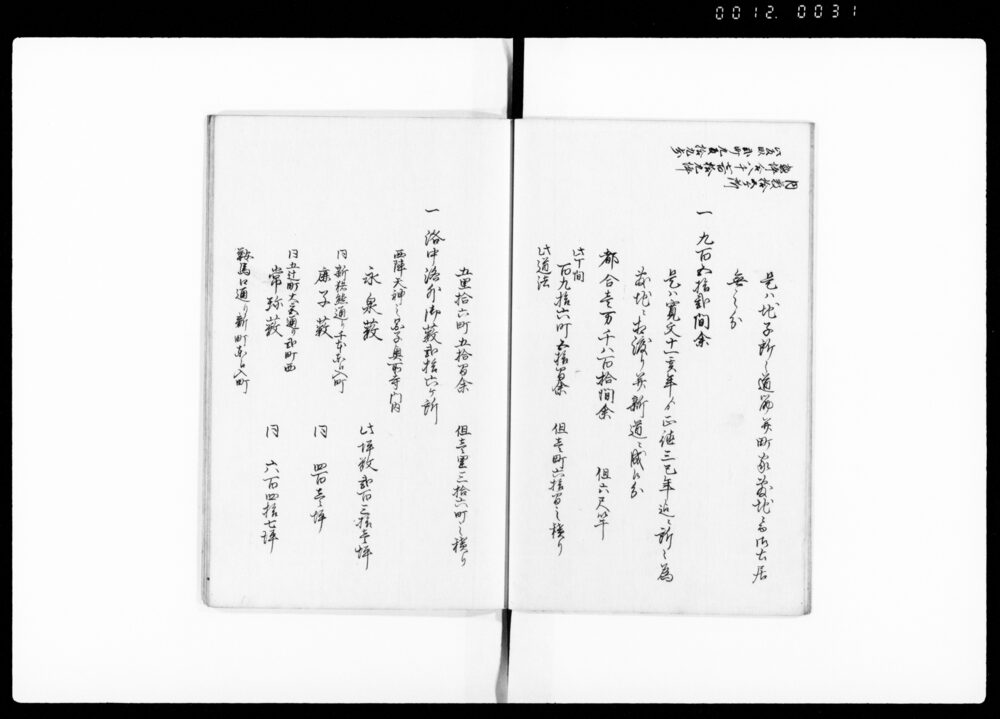 0012.0031
是ハ地子所之道筋并町家藪地ニ而御土居
無之分
一 九百五拾弐間余
是ハ寛文十一亥年ゟ正徳三巳年迄之所々為
藪地ニ相渡り并新道ニ成候分
都合壱万千八百拾間余 但六尺竿
此丁間
百九拾六町五拾間余 但壱町六拾間之積り
此道法
五里拾六町五拾間余 但壱里三拾六町之積り
一 洛中洛外御藪弐拾六ケ所
西陣天神之図子奥 寺門内
永泉藪 此坪数弐百三拾壱坪
同新 通り千本東江入町
廉子藪 同 四百壱坪
同五辻町大宮通り 町西
常弥藪 同 六百四拾七坪
鞍馬口通り新町東江入町